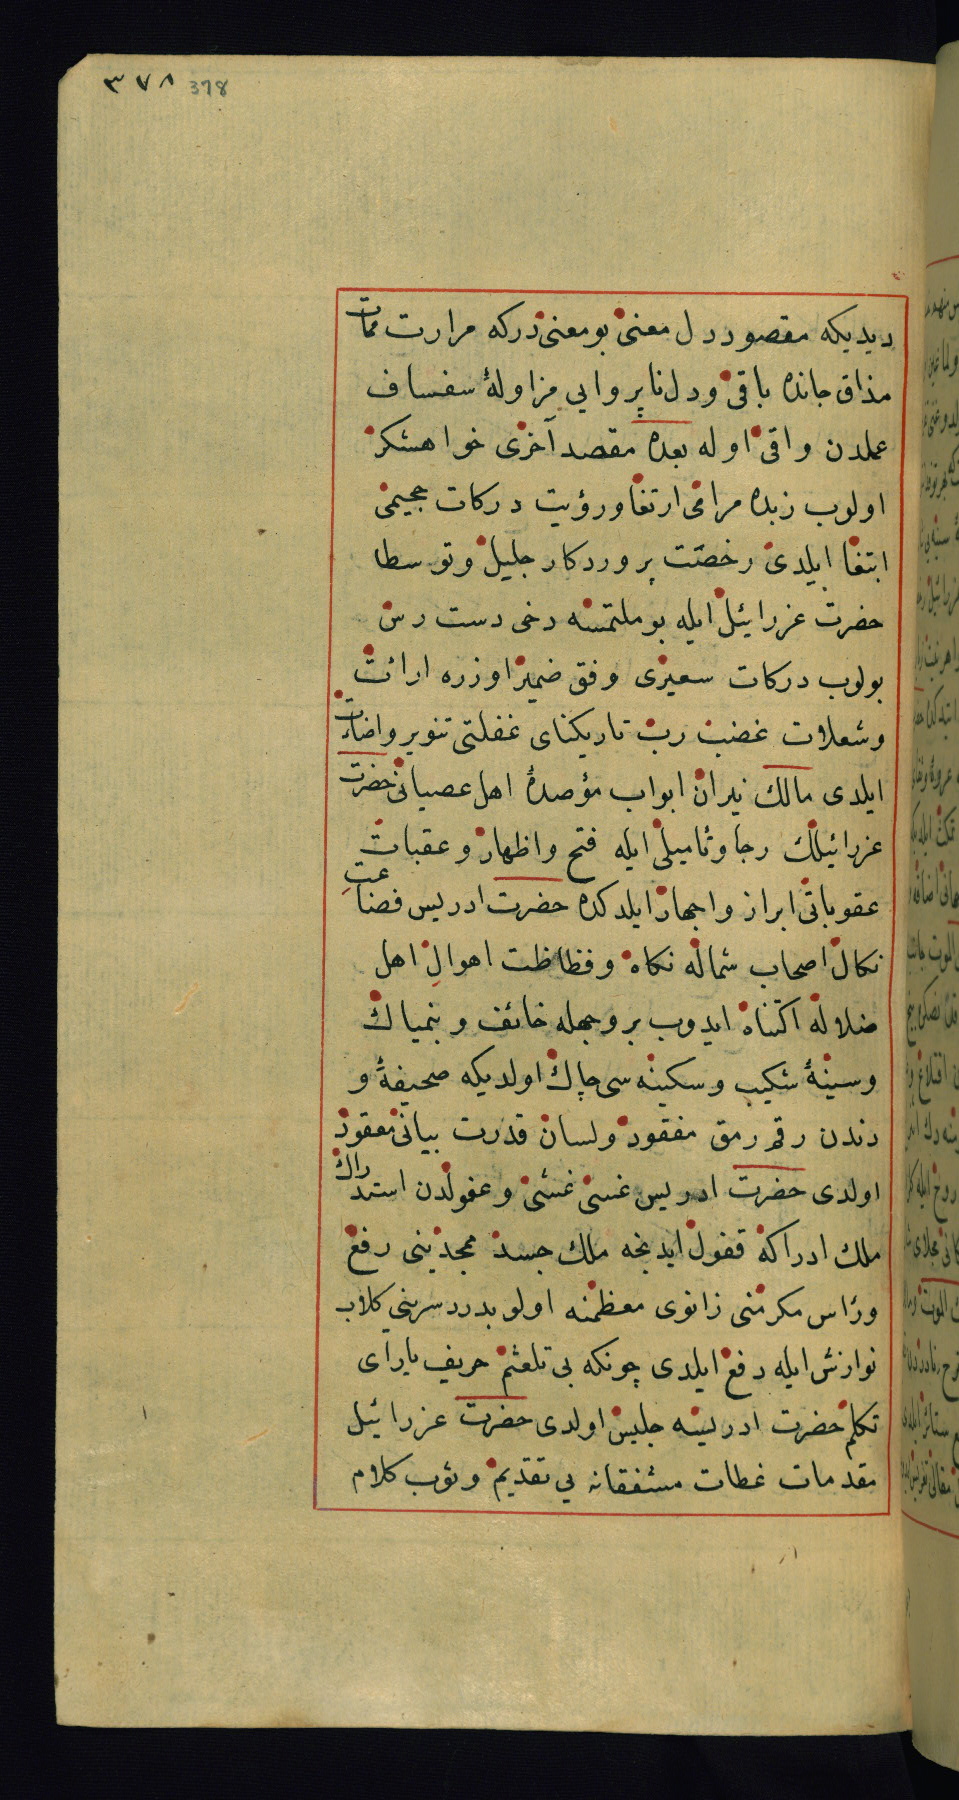 ٣٧٨ 378
ديديكه مقصود دل معنئ بو معنی دركه مرارت ممات
مذاق جانده باقی ودل ناپروايی مزاولۀ سفساف
عملدن واقی اوله بعده مقصد آخری خواهشكر
اولوب زبده مراقی ارتقا ورؤيت دركات جحيمی
ابتغا ايلدی رخصت پروردكار جليل وتوسطا
حضرت عزرائيل ايله بو ملتمسنه دخی دست رس
بولوب دركات سعيری وفق ضمير اوزره ارائت
وشعلات غضب رب تاريكنای غفلتی تنوير واضائت
ايلدی مالك نيران ابواب مؤصدۀ اهل عصيانی حضرت
عزرائيلك رجا وتاميلی ايله فتح واظهار وعقبات
عقوباتی ابراز واجهار ايلدكده حضرت ادريس فضاعت
نكال اصحاب شماله نكاه وفظاظت اهوال اهل
ضلاله اكتناه ايدوب بر وجهله خائف وبيمناك
وسينۀ شكيب وسكينه سی چاك اولديكه صحيفۀ و
دندن رقم رمق مفقود ولسان قدرت بيانی معقود
اولدی حضرت ادريس غسئ غشئ وعفولدن استدراك
ملك ادراكه قفول ايدنجه ملك جسد ممجدينی رفع
ورأس مكرمنی زانوی معظمنه اولوب درد سرينی كلاب
نوازش ايله دفع ايلدی چونكه بی تلعثم حريف يارای
تكلم حضرت ادريسه جليس اولدی حضرت عزرائيل
مقدمات عظات مشفقانه يی تقديم وثوب كلام